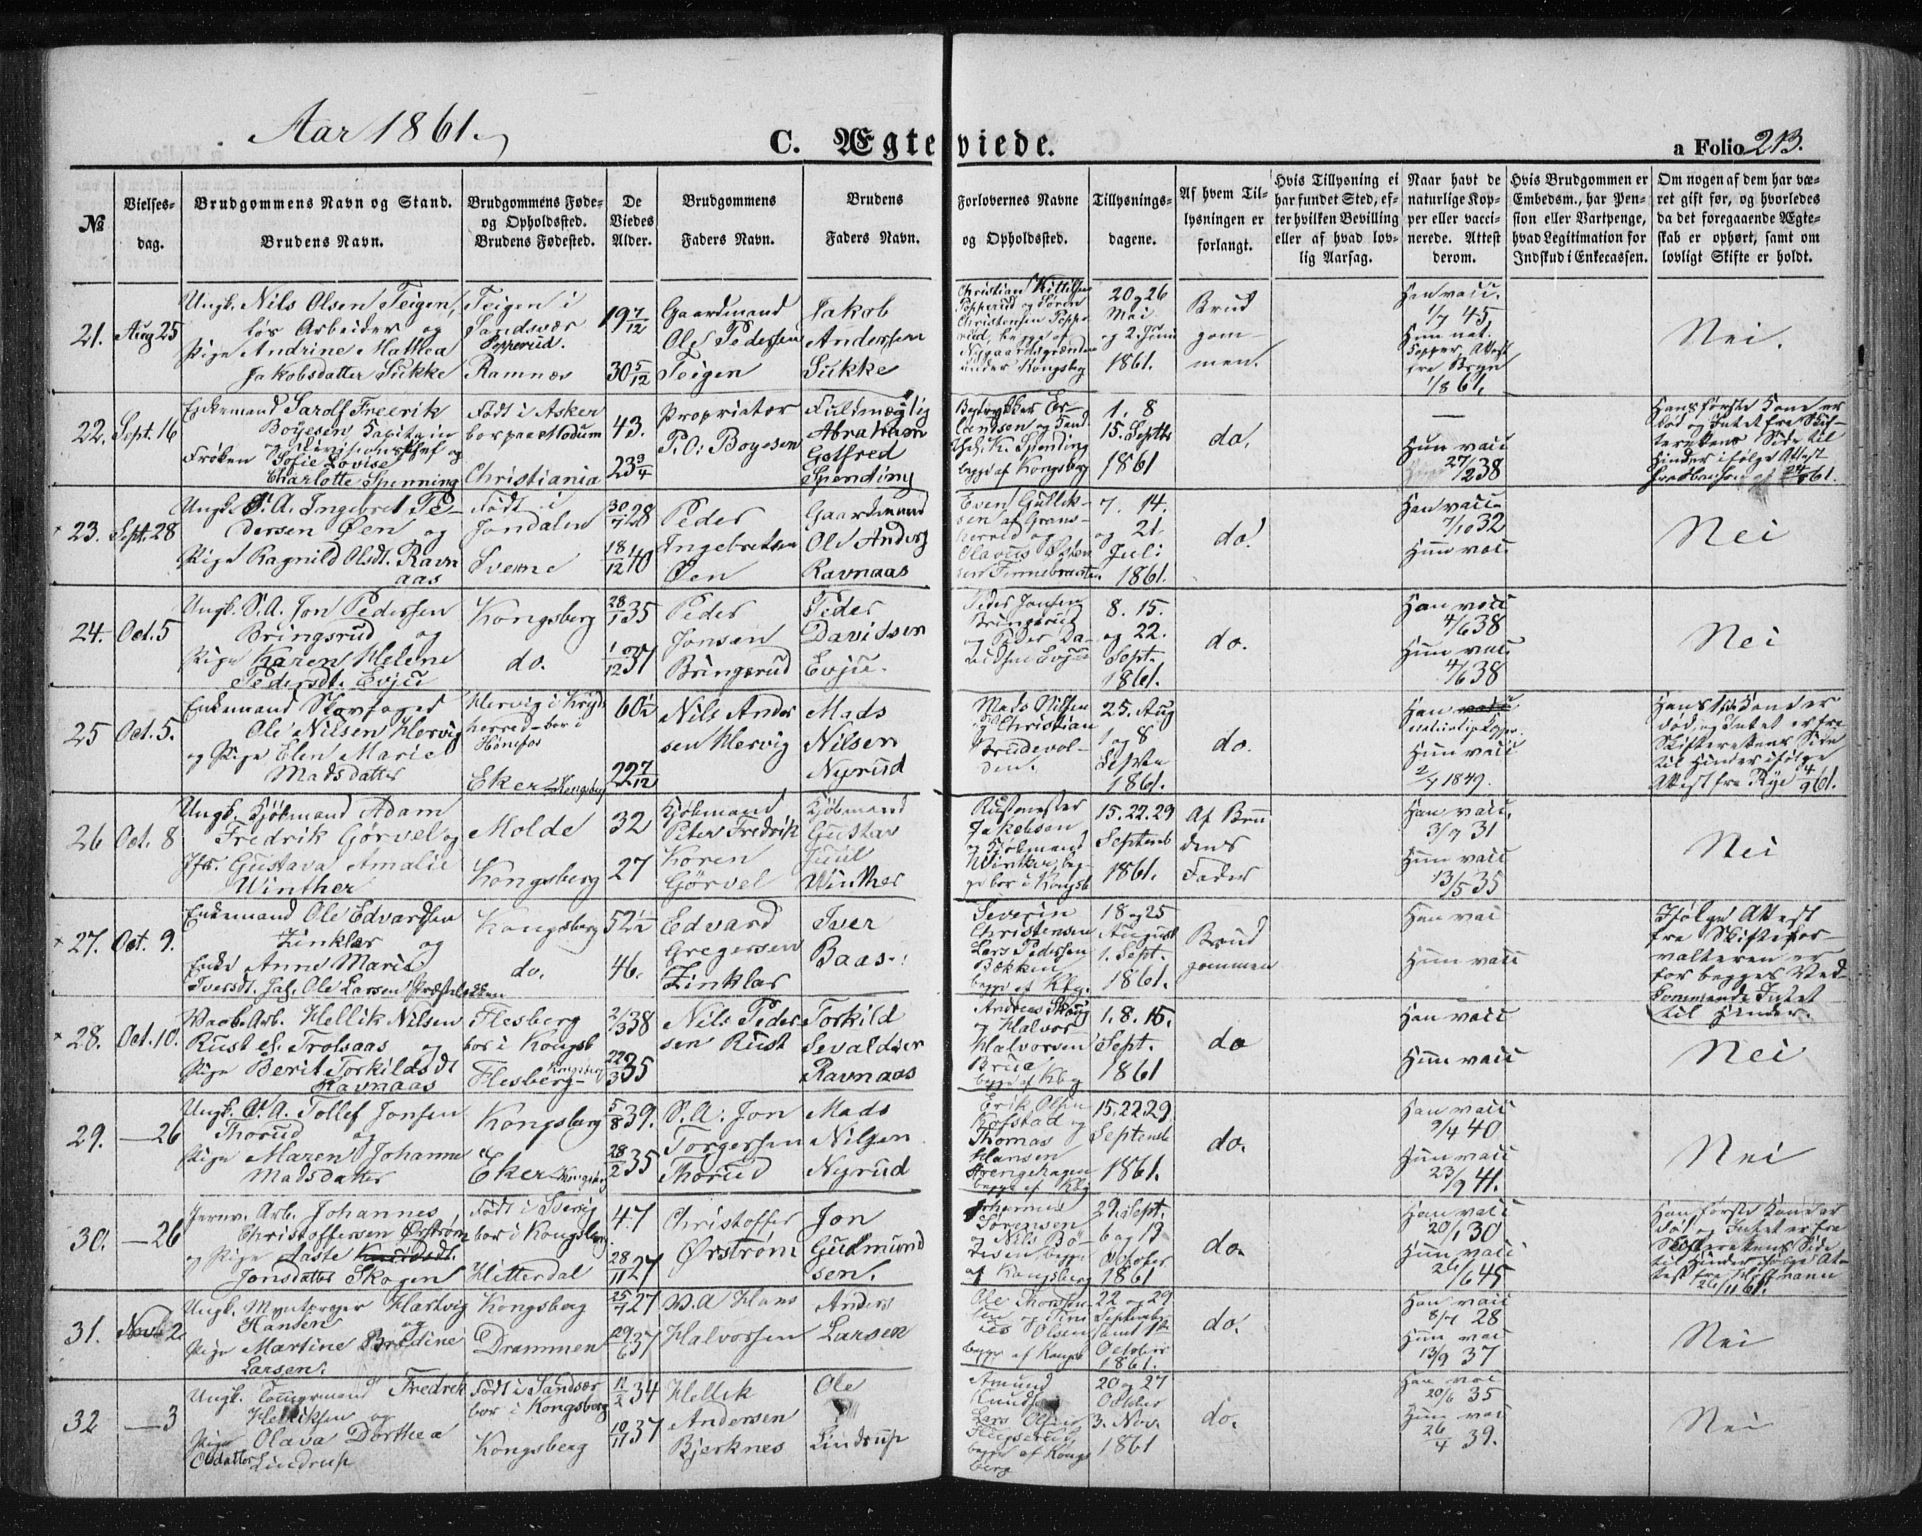 Aar 1861.
C. Ægteviede.
a Folio 213.
№
Vielses-
dag.
Brudgommens Navn og Stand.
Brudens Navn.
Brudgommens Føde-
og Opholdssted.
Brudens Fødested.
De
Viedes
Alder.
Brudgommens
Faders Navn.
Brudens
Faders Navn.
Forlovernes Navne
og Opholdssted.
Tillysnings-
dagene.
Af hvem Til-
lysningen er
forlangt.
Hvis Tillysning ei
har fundet Sted, ef-
ter hvilken Bevilling
eller af hvad lov-
lig Aarsag.
Naar havt de
naturlige Kop-
per eller vacci-
nerede. Attest
derom.
Hvis Brudgommen er
Embedsm., har Pen-
sion eller Vartpenge,
hvad Legitimation for
Indskud i Enkecassen.
Om nogen af dem har væ-
ret gift før, og hvorledes
da det foregaaende Ægte-
skab er ophørt, samt om
lovligt Skifte er holdt.
21. Aug 25
Ungk. Nils Olsen Teigen,
løs Arbeider og
Pige Andrine Mathea
Jakobsdatter Sukke
Teigen i
Sandsvær
Popperud.
Ramnæs
19 7/12
30 5/12
Gaardmand
Ole Pedersen
Teigen
Jakob
Andersen
Sukke
Christian Kittilsen
Popperud og Søren
Christensen Poppe-
rud, begge af
under Kongsbg
20 og 26
Mai
og 2 Juni
1861.
Brud
gom-
men.
Han vacc.
1/7 45
Hun nat.
Kopper, Attest
fra Bryn
1/8 61.
Nei.
22. Sept. 16
Enkemand Sarolf Freerik
Boyesen Kapitain
og Divisionschef og
Frøken Sofie Lovise
Charlotte Spenning
Født i Asker
bor paa Modum
Christiania
43.
23 3/4
Proprietær
P. Boyesen
Fuldmægtig
Abraham
Gotfred
Spending
begge af Kongsbg
1. 8
15. Septbr
1861
do.
—
Hun vacc
27/2 38
Hans første Kone er
død og Intet fra Skif-
teretens Side til
Hinder ifølge Attest
23. Sept. 28
Ungk. S. A. Ingebret Pe-
dersen Øen og
Pige Ragnild Olsdt. Ravn
aas
Født i
Jondalen
Svenne
30/7 28
18/12 40
Peder
Ingebretsen
Øen
Gaardmand
Ole Anders
Ravnaas
Even Gullik-
sen af Grans-
herred og
Olavus
7. 14.
og 21.
Juli
1861.
do.
Han vacc.
7/10 32
Hun vac.
Nei
24. Oct. 5
Ungk. S. A. Jon Pedersen
Bringsrud og
Pige Karen Helene
Pedersdt. Evju
Kongsberg
do.
28/1 35
1/12 37
Peder
Jonsen
Bringsrud
Peder
Davidsen
Evju.
Peder Jonsen
Bringsrud
og Peder Da-
vidsen Evju
8. 15.
og 22.
Sept.
1861.
do.
Han vacc
4/6 38
Hun vacc
4/6 38
Nei
25 Oct. 5.
Enkemand Skovfoged
Ole Nilsen Hervig
og Pige Elen Marie
Madsdatter
Hervig i Kryds
herred – bor i
Hønefos
Eker – Kongsberg
60 1/2
22 7/12
Nils Ander
sen Hervig
Mads
Nilsen
Nyrud
Mads Nilsen
og Christian
Brudevol-
den.
25. Aug
1 og 8
Septbr
1861.
do.
Han vacc
naturlige Kopper
Hun vacc
2/7 1849.
død, og Intet er fra
Skifteretens Side
til Hinder ifølge
Attest fra Rye 4/9 61.
26 Oct. 8
Ungk. Kjøbmand Adam
Fredrik Görvel og
Jfr. Gustava Amalie
Winther
Molde
Kongsberg
32
27
Kjøbmand
Peter Fredrik
Koren
Görvel
Kjøbmand
Gustav
Juul
Winther
Rustmester
Jakobsen
og Kjøbmand
Winther, beg-
ge bor i Kongsb
15. 22. 29
Septemb
1861.
Af Bru
dens
Fader
Han vacc.
3/9 31
Hun vacc
13/5 35
Nei
27. Oct. 9.
Enkemand Ole Edvardsen
Zinklar og
Enke Anne Marie
Iversdt.
Kongsberg
do.
52 1/2
46.
Edvard
Gregersen
Zinklar
Iver
Baas.
Severin
Christensen
Lars Pedersen
Bækken
begge af Kbg.
18 og 25
August
1. Sept.
1861.
Brud
gommen
Han vac
Hun vacc
Ifølge Attest
fra Skiftefor-
valteren er
for begges Ved-
kommende Intet
til Hinder.
28. Oct. 10.
Vaab. Arb. Hellik Nilsen
Rust el. Trolsaas og
Pige Berit Torkildsdt
Ravnaas
Flesberg
bor i Kongsb
Flesberg – Kongsberg
2/3 38
22/3 35
Nils Peder
sen Rust
Torkild
Sevaldsen
Ravnaas
Andreas Skaug
og Halvor
Halvorsen
Brue
begge af Kbg
1. 8. 15.
Sept.
1861
do
Han vacc
Hun vacc
Nei
29. — 26
Ungk. S. A. Tollef Jonsen
Thorud og
Pige Maren Johanne
Madsdatter
Kongsberg
Eker – Kongsberg
5/8 39.
28/2 35
S. A. Jon
Torgersen
Thorud
Mads
Nilsen
Nyrud
Erik Olsen
Kofstad og
Thomas
Hansen
begge af Kbg
15. 22 29.
Septemb
1861.
do.
Han vacc
2/4 40
Hun vacc
23/9 41.
Nei
30. — 26
Jernv. Arb. Johannes
Christoffersen Ørstrøm
og Pige Aaste
Jonsdatter Skogen
Født i Sverig
bor i Kongsberg
Hitterdal
47
28/11 27
Christoffer
Ørstrøm
Jon
Gudmund
sen.
Johannes
Sørensen
og Nils Bø-
af Kongsberg
29. Sept.
6 og 13
October
1861
do.
Han vacc
20/1 30
Hun vacc
26/6 45
Han første Kone er
død og Intet er fra
Skifteretens Side
til Hinder ifølge At-
26/11 61.
31. Novb 2
Ungk. Myntpræger Hartvig
Hansen og
Pige Martine Bredine
Larsen.
Kongsberg
Drammen
25/7 27
29/6 37
V. A Hans
Halvorsen
Anders
Larsen
Ole Thorsen
Olsen
begge af Kongsb
22 og 29
Septemb
samt 1ste
October
1861.
do.
Han vacc
8/7 28
Hun vac
13/9 37
Nei
32 — 3
Ungk. Tømmermand Fredrik
Helliksen og
Pige Olava Dorthea
Olsdatter Lindrup
Født i Sandsvær
bor i Kongsberg
Kongsberg
11/2 34
10/11 37
Hellik
Andersen
Bjerknes
Ole
Lindrup
Amund
Knudsen
Lars Olsen
begge af Kongs
berg
20 og 27
October
3. Nov.
1861
do.
Han vac
20/6 35
Hun vac
26/4 39.
Nei